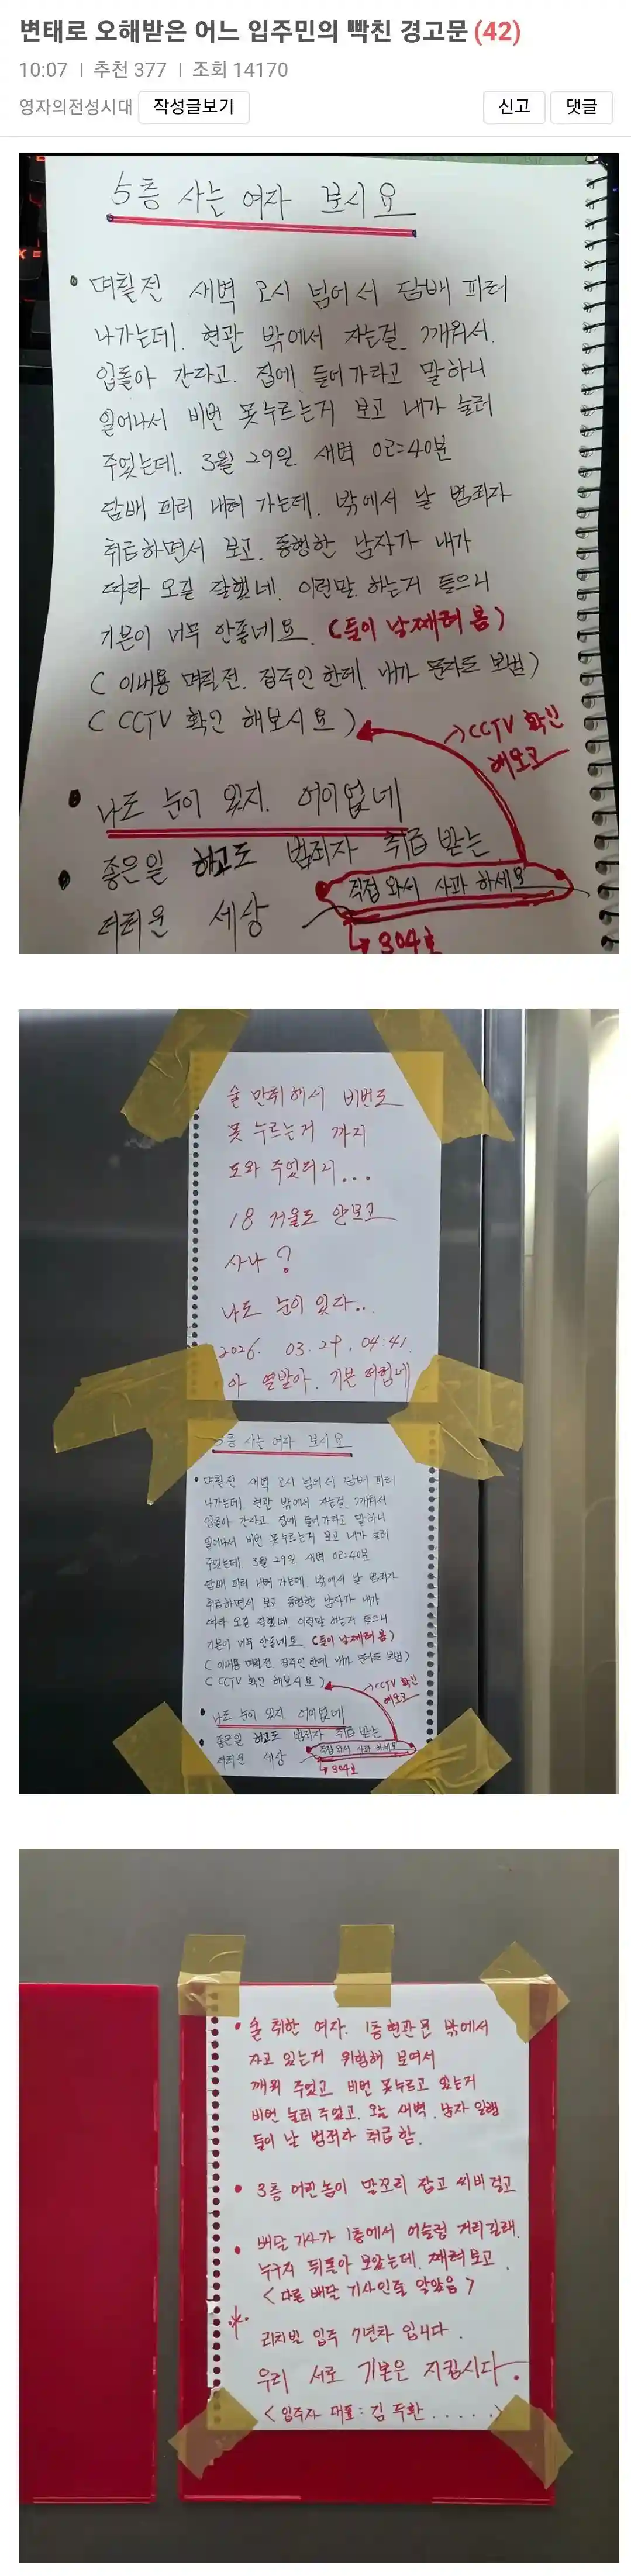 변태로 오해받은 어느 입주민의 빡친 경고문 (42)
10:07 ㅣ 추천 377 ㅣ 조회 14170
영자의전성시대 작성글보기 신고 댓글
5층 사는 여자 보시요
• 며칠전 새벽 2시 넘어서 담배 피러
나가는데. 현관 밖에서 자는걸 깨워서.
입돌아 간라고. 집에 들어가라고 말하니
일어나서 비번 못누르는거 보고 내가 눌러
주었는데. 3월 29일. 새벽 02:40분
담배 피러 내려 가는데. 밖에서 날 범죄자
취급하면서 보고. 동행한 남자가 내가
따라 오길 잘했네. 이런말. 하는거 들으니
기분이 너무 안좋네요. (둘이 날째려 봄)
( 이내용 며칠전. 집주인 한테. 내가 문자도 보냄)
( CCTV 확인 해보시요 )
→ CCTV 확인
해보고
• 나도 눈이 있지. 어이없네
• 좋은일 하고도 범죄자 취급 받는
더러운 세상
직접 와서 사과 하세요
↳ 304호
술 만취해서 비번도
못 누르는거 까지
도와 주었더니...
18 거울도 안보고
사나?
나도 눈이 있다..
2026. 03. 29. 04:41.
아 열받아. 기분 더럽네
5층 사는 여자 보시요
• 며칠전 새벽 2시 넘어서 담배 피러
나가는데. 현관 밖에서 자는걸 깨워서
입돌아 간라고. 집에 들어가라고 말하니
일어나서 비번 못누르는거 보고 내가 눌러
주었는데. 3월 29일. 새벽 02:40분
담배 피러 내려 가는데. 밖에서 날 범죄자
취급하면서 보고. 동행한 남자가 내가
따라 오길 잘했네. 이런말. 하는거 들으니
기분이 너무 안좋네요. (둘이 날째려 봄)
( 이내용 며칠전. 집주인 한테. 내가 문자도 보냄)
( CCTV 확인 해보시요 )
→ CCTV 확인
해보고
• 나도 눈이 있지. 어이없네
• 좋은일 하고도 범죄자 취급 받는
더러운 세상
직접 와서 사과 하세요
↳ 304호
• 술 취한 여자. 1층 현관문 밖에서
자고 있는거 위험해 보여서
깨워 주었고 비번 못누르고 있는거
비번 눌러 주었고. 오늘 새벽. 남자 일행
들이 날 범죄자 취급함.
• 3층 어린놈이 말꼬리 잡고 씨비 걸고
• 배달 기사가 1층에서 어슬렁 거리길래.
누구지 뒤돌아 보았는데. 째려보고.
< 다른 배달 기사인줄 알았음 >
* 리치빌 입주 7년차 입니다.
우리 서로 기본은 지킵시다.
< 입주자 대표 : 김두환 ..... >